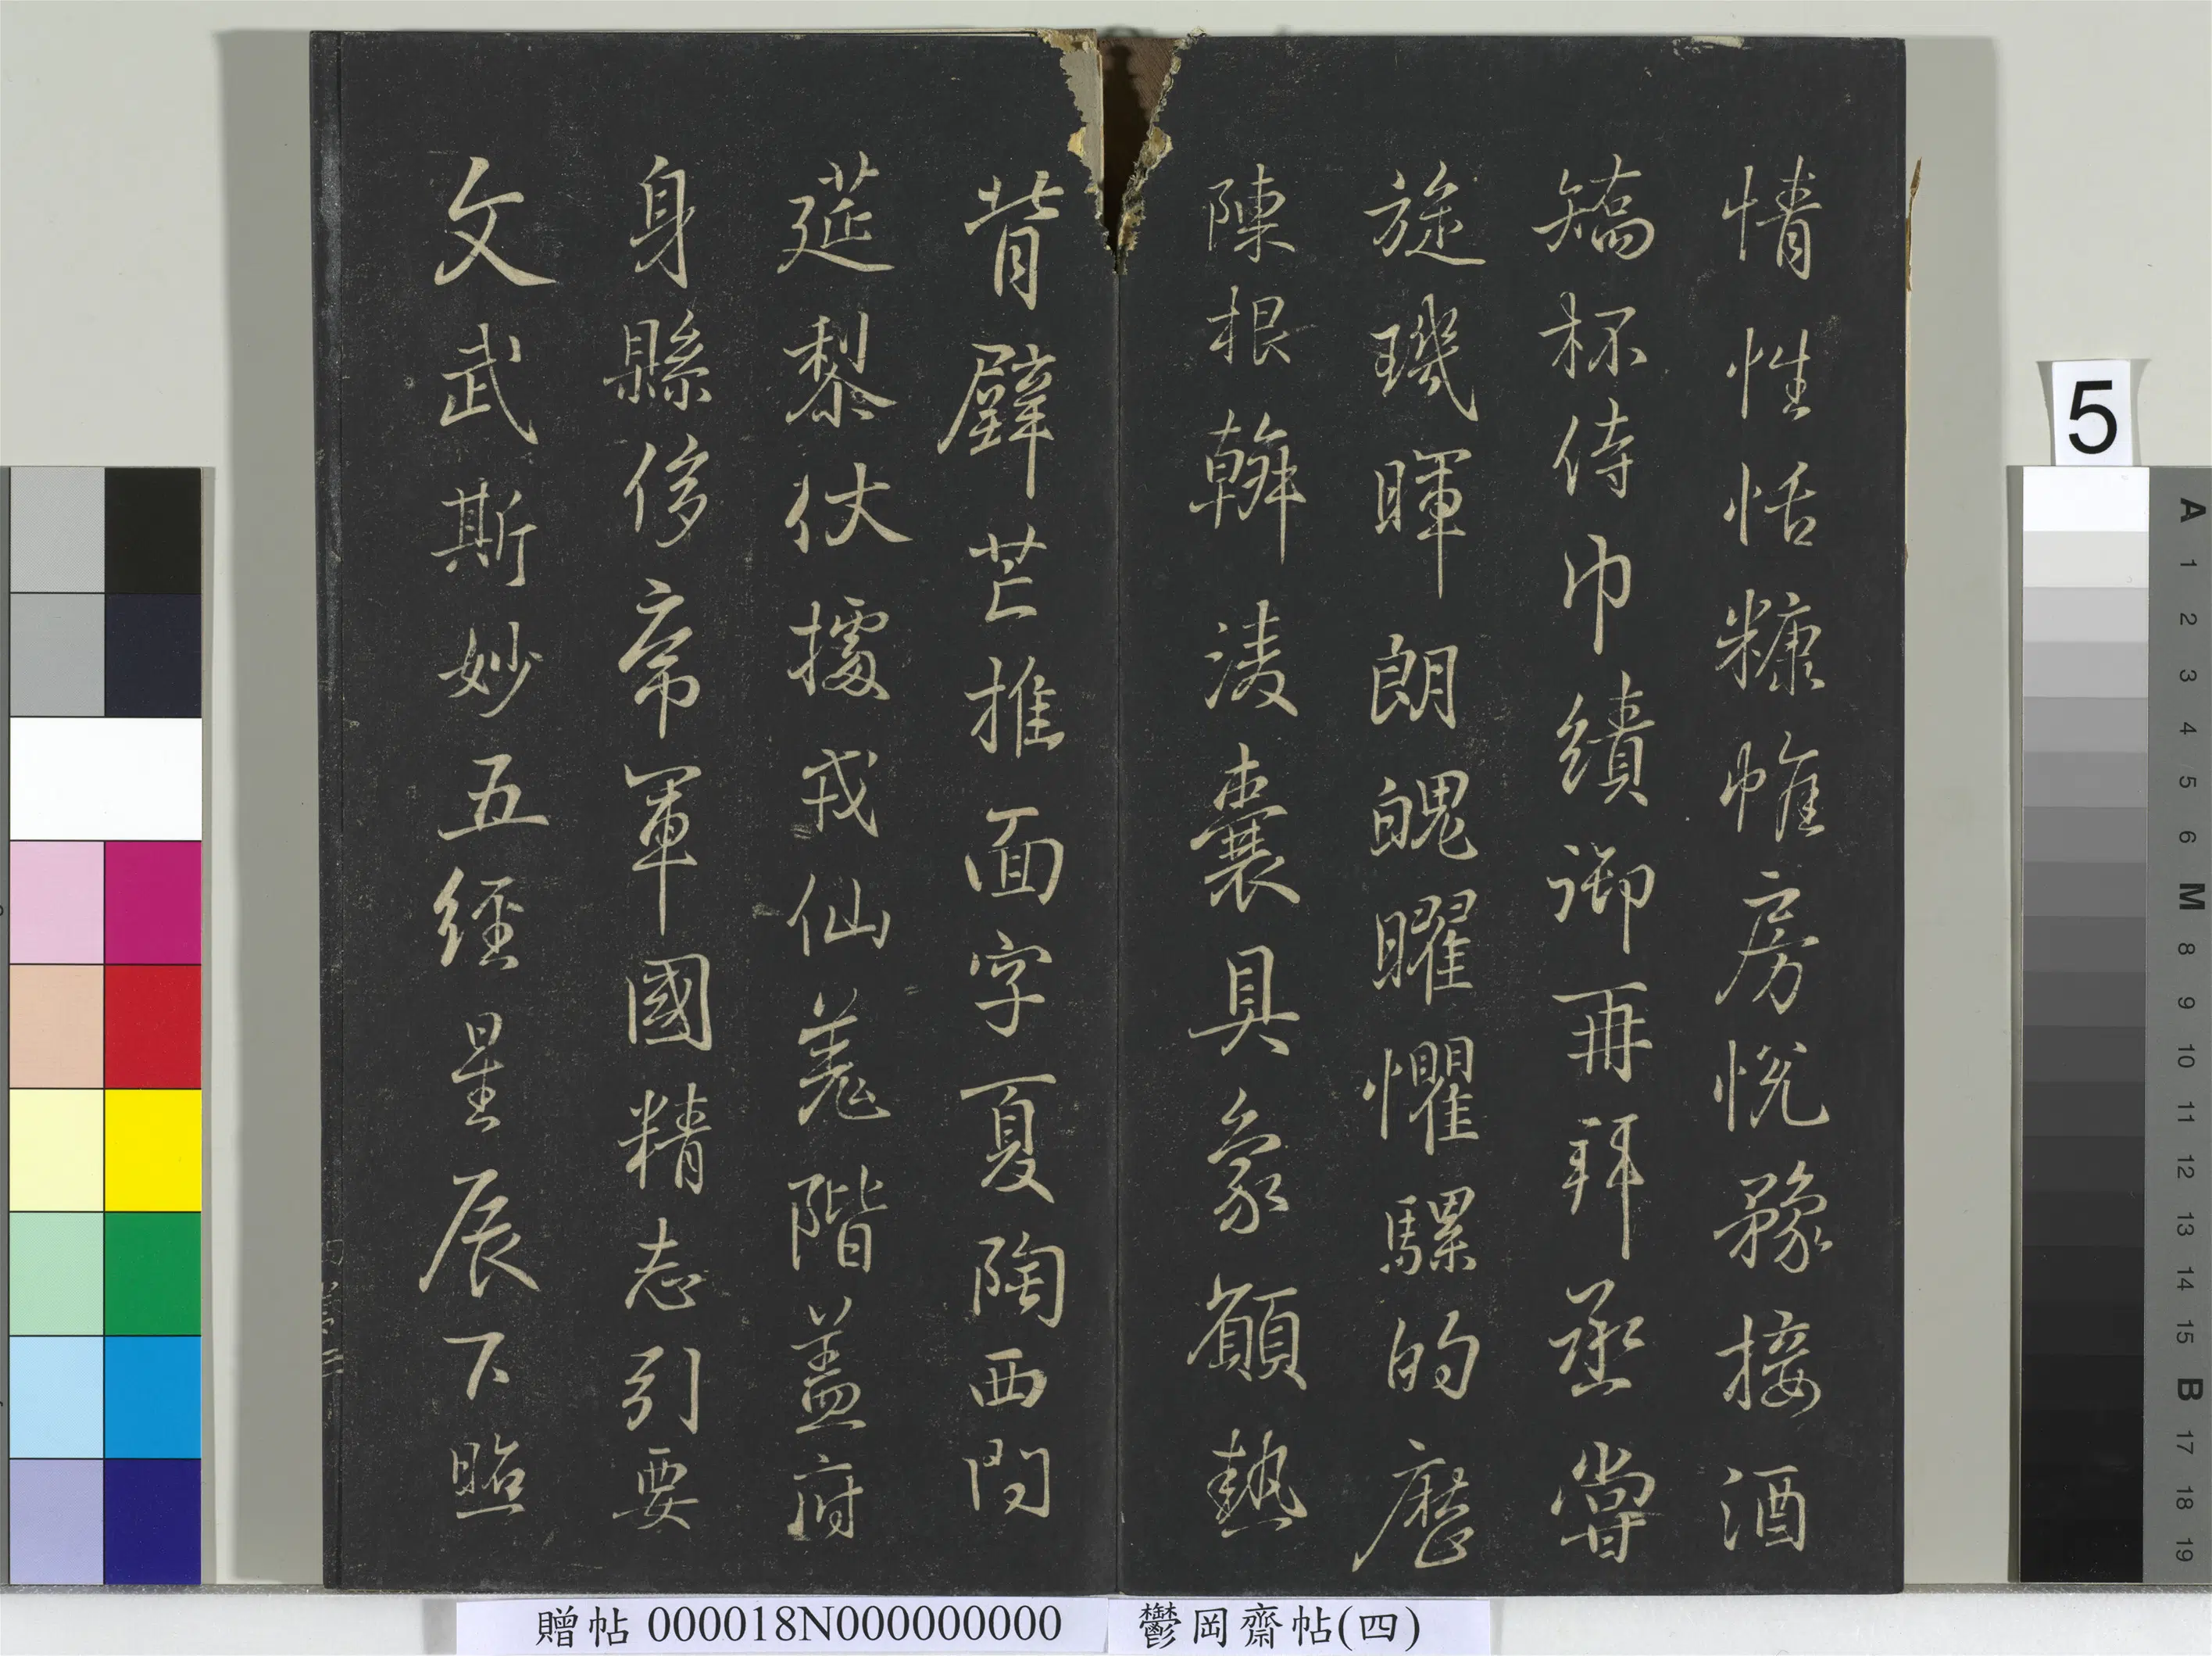 情性恬糠帷房悅豫接酒
矯杯侍巾績御再拜丞嘗
旋璣暉朗魄曜懼騾的歷
陳根斡淩囊具象顧熱
背躃芒推面字夏陶西問
莚黎伏據戎仙羌階盖府
身縣侈帝軍國精志引要
文武斯妙五經星辰下照
贈帖 000018N000000000
鬱岡齋帖(四)
5
A
1
2
3
4
5
6
M
8
9
10
11
12
13
14
15
B
17
18
19